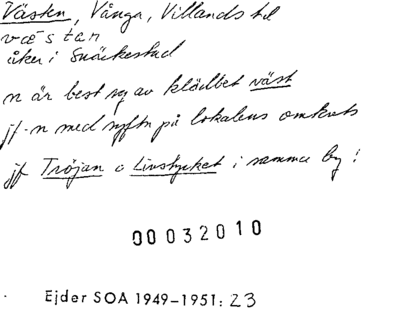 Västen, Vånga, Villands hd
væ̅stan
åker i Snäckestad
n är best sg av klädbet väst
jf n med syftn på lokalens omkrets
jf Tröjan o Livstycket i samma by!
00032010
Ejder SOA 1949–1951: 23